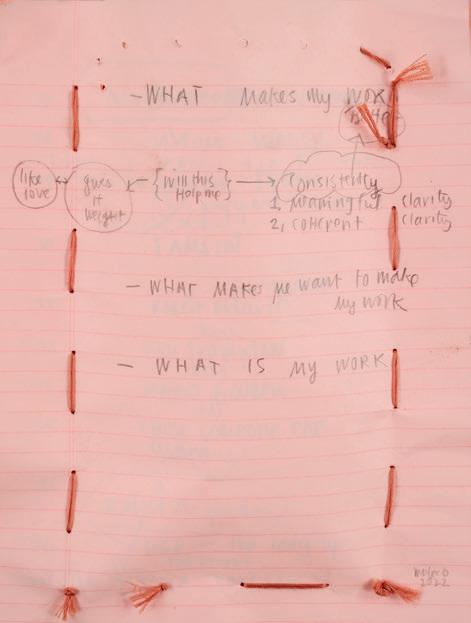 - WHAT MAKES MY WORK
like love
gives it weight
{ Will this Help me }
Consistently
1, Meaningful
2, coherent
clarity
clarity
- WHAT MAKES ME want to make
my work
- WHAT IS MY WORK
2022